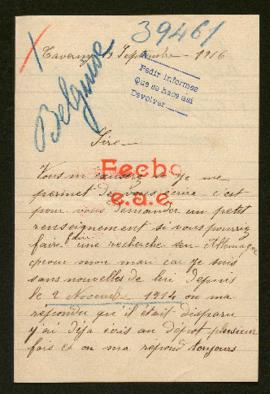 39461
X
Taverny 3 Septembre 1916
Pedir informes
Que se hace así
Devolver
Belgique
Sire
Vous m'excuserez si je me
permet de vous écrire c'est
Fecho
e.a.e
pour vous demander un petit
renseignement si vous pourriez
faire faire une recherche en Allemagne
pour mon mari car je suis
sans nouvelles de lui depuis
le 2 Novembre 1914 on ma
répondu qu'il était disparu
j'ai déja écris au dépot plusieur
fois et on ma répond toujours